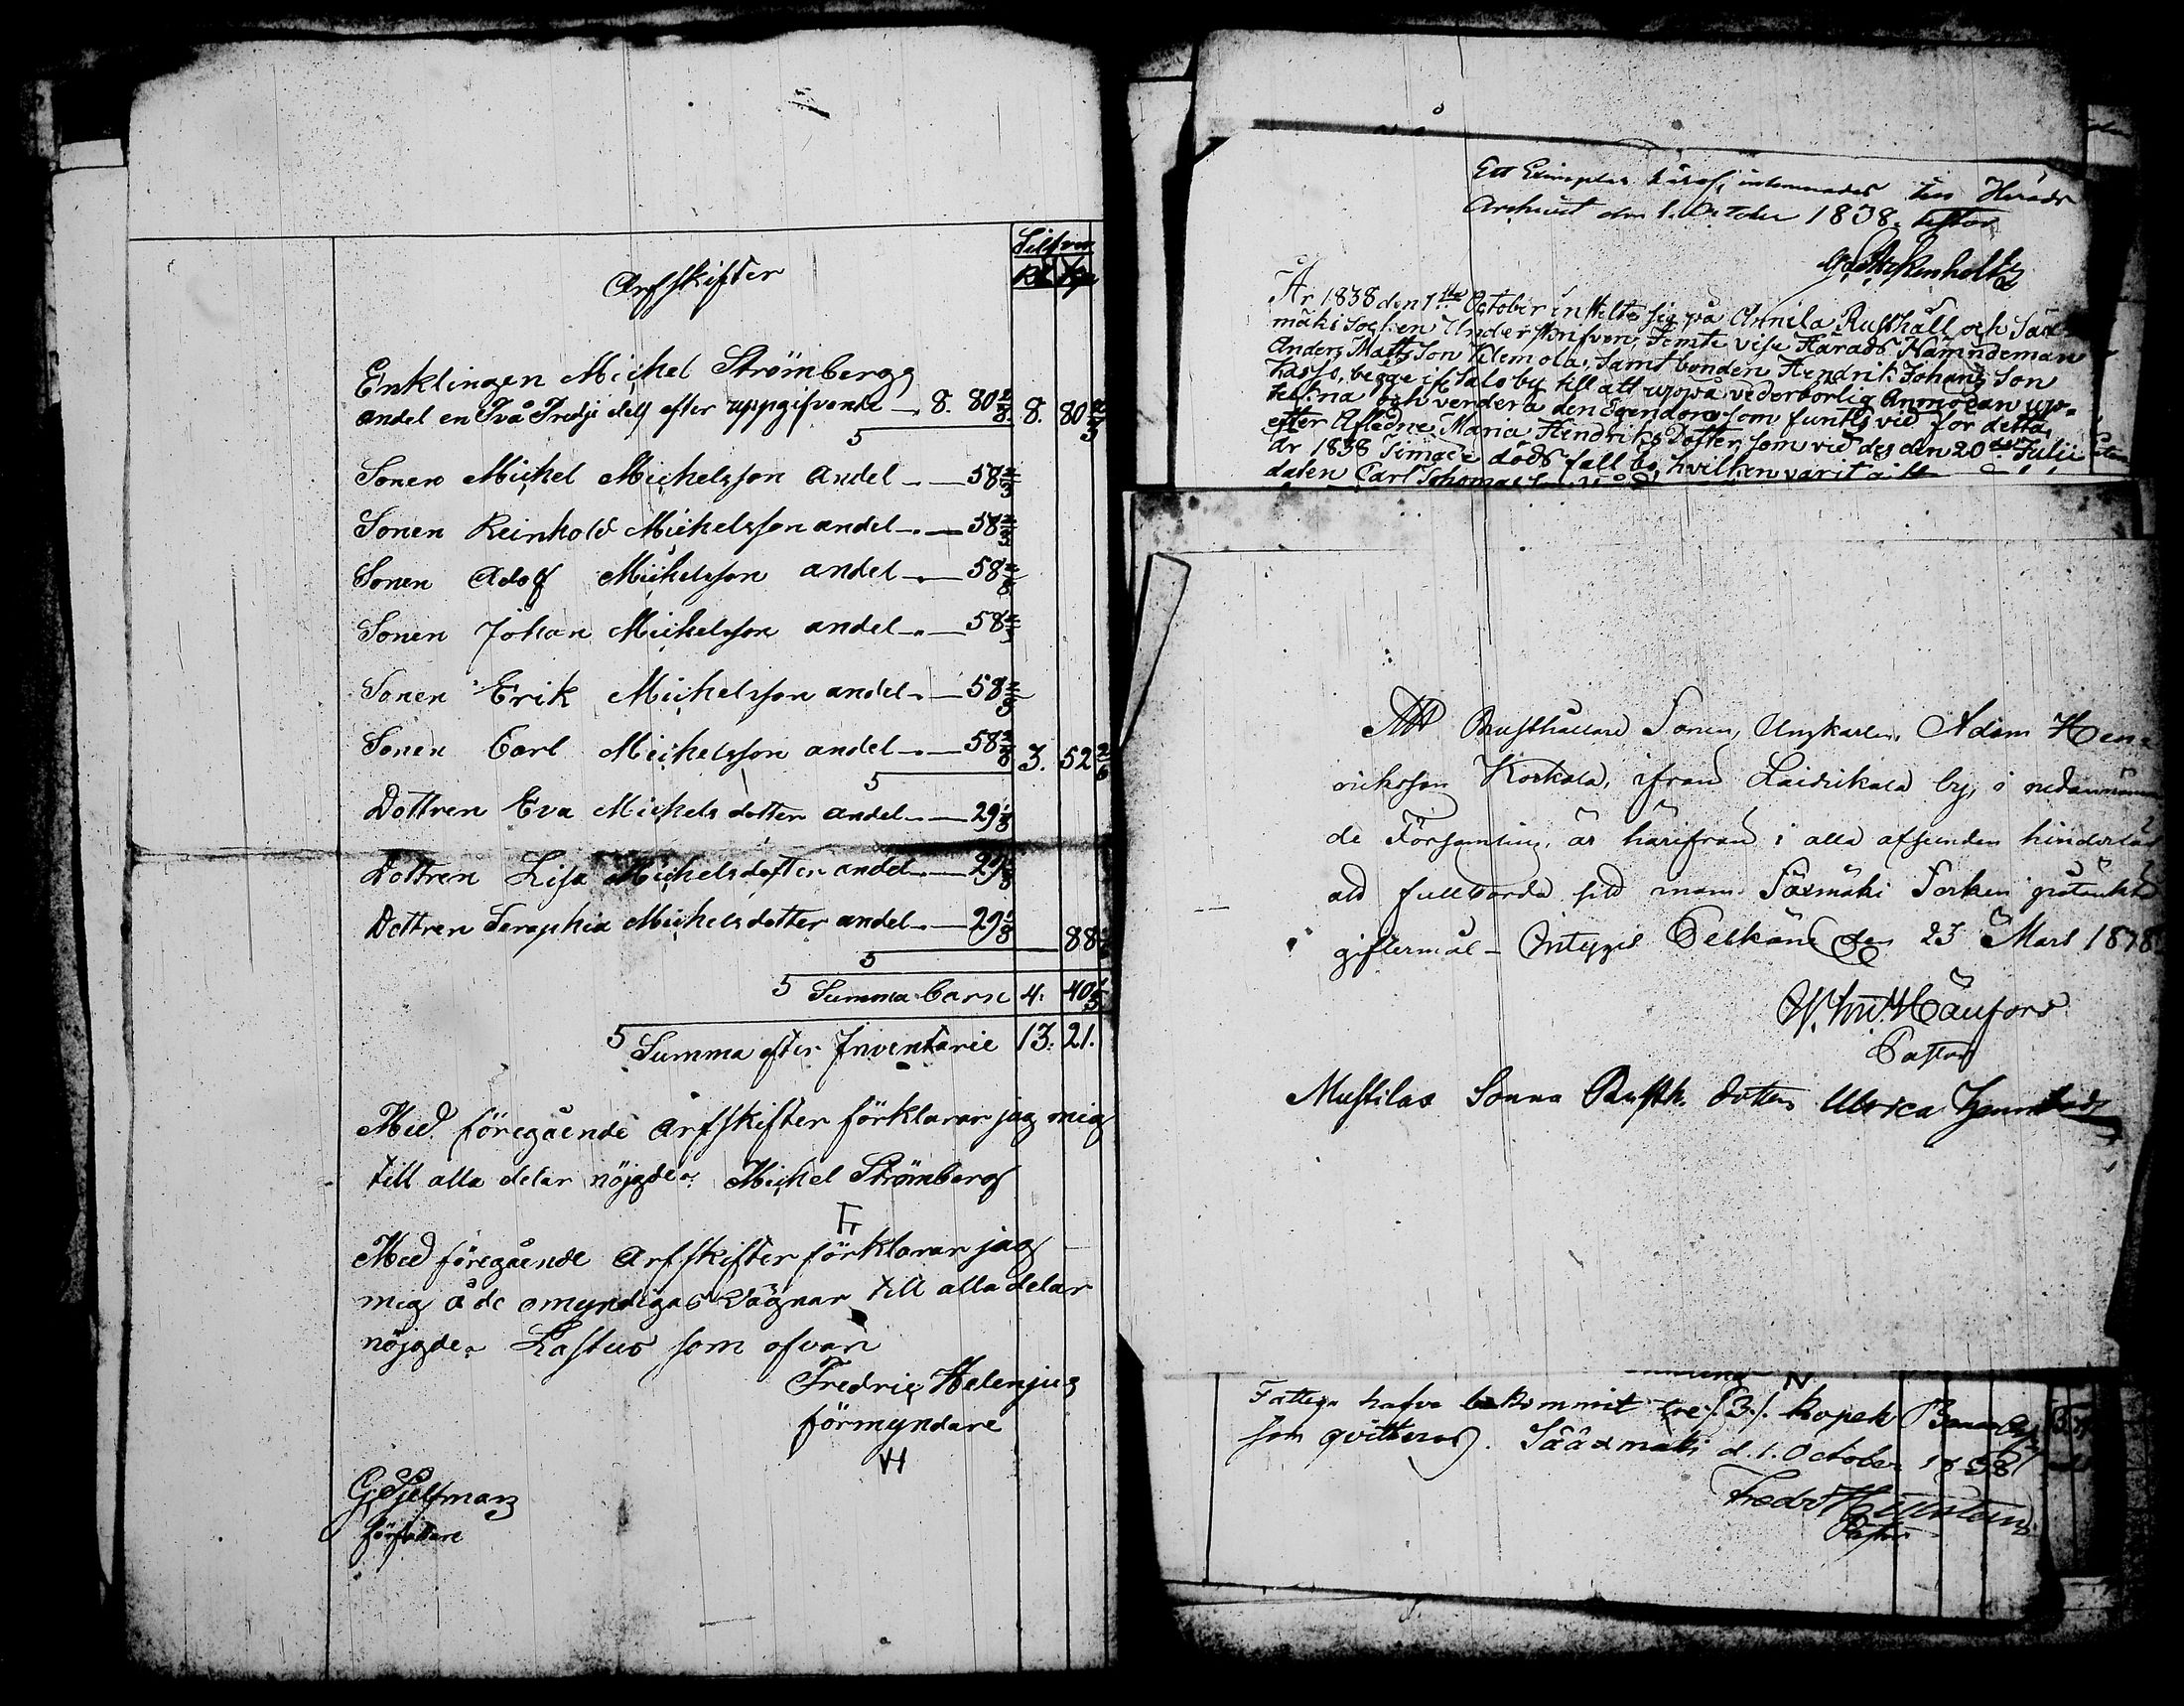 Silfver
Rl Kp
Arfskifter
Enklingen Michel Strömbergs
andel en Två Tredje dels efter uppgifvande — 8. 80 2/3 8. 80 2/3
Sonen Michel Michelsson andel — 58 2/3
Sonen Reinhold Michelsson andel — 58 2/3
Sonen Adolf Michelsson andel — 58 2/3
Sonen Johan Michelsson andel — 58 2/3
Sonen Erik Michelsson andel — 58 2/3
Sonen Carl Michelsson andel — 58 2/3 3. 52
Dottren Eva Michelsdotter andel — 29 1/3
Dottren Lisa Michelsdotter andel — 29 1/3
Dottren Seraphia Michelsdotter andel — 29 1/3 88
Summa barn 4. 40
Summa efter Inventarie 13. 21.
Med föregående Arfskifter förklarar jag mig
till alla delar nöjgder. Michel Strömberg
Med föregående Arfskifter förklarar jag
mig å de omyndigas vägnar till alla delar
nöjgder som ofvan
Fredric Helenjus
förmyndare
författare
Ett Exemplar häraf, till Härads
Archivet den 1. October 1838.
År 1838 den 1sta October instälte sig på Annila Rusthåll och Sax
mäki Socken Underskrifven, Femte vise Härads Nämndeman
Anders Matts Son Klemola, Samt bonden Hendrik Johans Son
begge if by till att uppå vederbörlig Anmodan upp-
tekna och verdera den Egendom som funtes vid för detta
efter Afledne Maria Hendriks Dotter som vid des den 20de Julii
år 1838 Timade döds fall bo, hvilken varit
daten Carl
Att Rusthållare Sonen, Ungkarlen Adam Hen-
riksson Korkala, ifrån Laidikala by, i nedannämn
de Församling, är härifrån i alla afseenden hinderlös
att fullborda sitt inom Säxmäki Socken påtänkta
giftermål — Intygas Pelkäne den 23 Mars 1878
Pastor
Mustilas Sonna Rusth. dotter Ulrica
Fattiga hafva bekommit tre /: 3 :/ kopek
som qvitteras. Sääxmäki d. 1. October 1838
Pastor